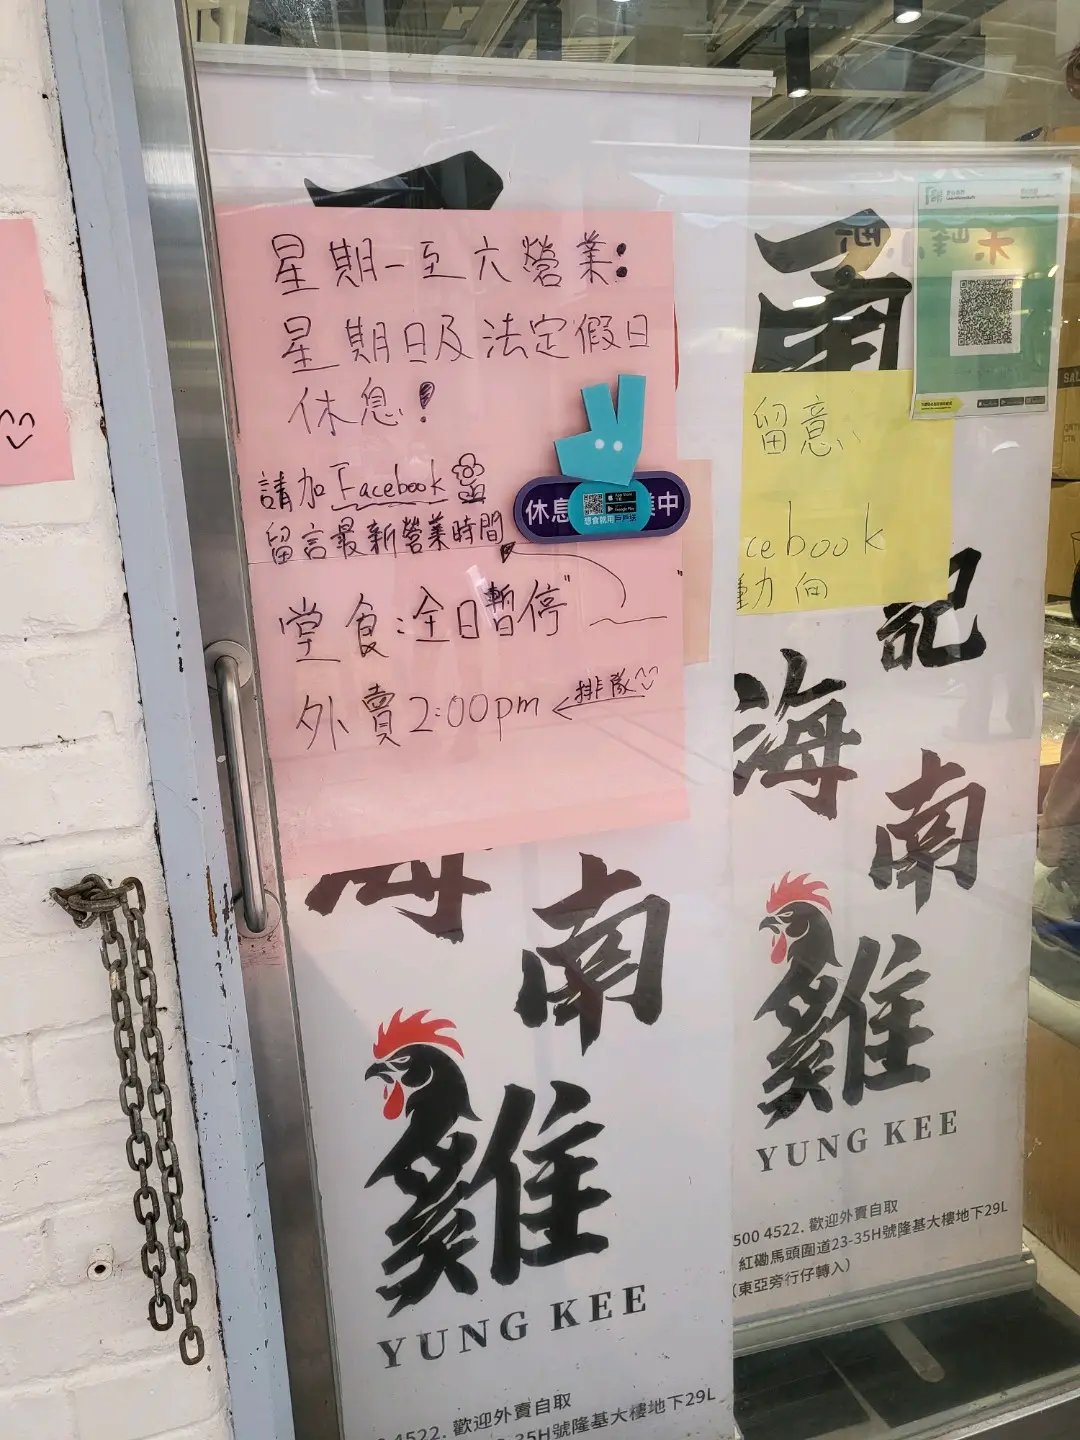 星期一至六營業:
星期日及法定假日
休息!
請加Facebook
留言最新營業時間
堂食:全日暫停"
外賣2:00pm ← 排隊
休息 業中
App Store
Google Play
想食就用戶戶送
南
雞
YUNG KEE
4522. 歡迎外賣自取
35H號隆基大樓地下29L
留意
cebook
動向
記
海
南
雞
YUNG KEE
500 4522. 歡迎外賣自取
紅磡馬頭圍道23-35H號隆基大樓地下29L
(東亞旁行仔轉入)